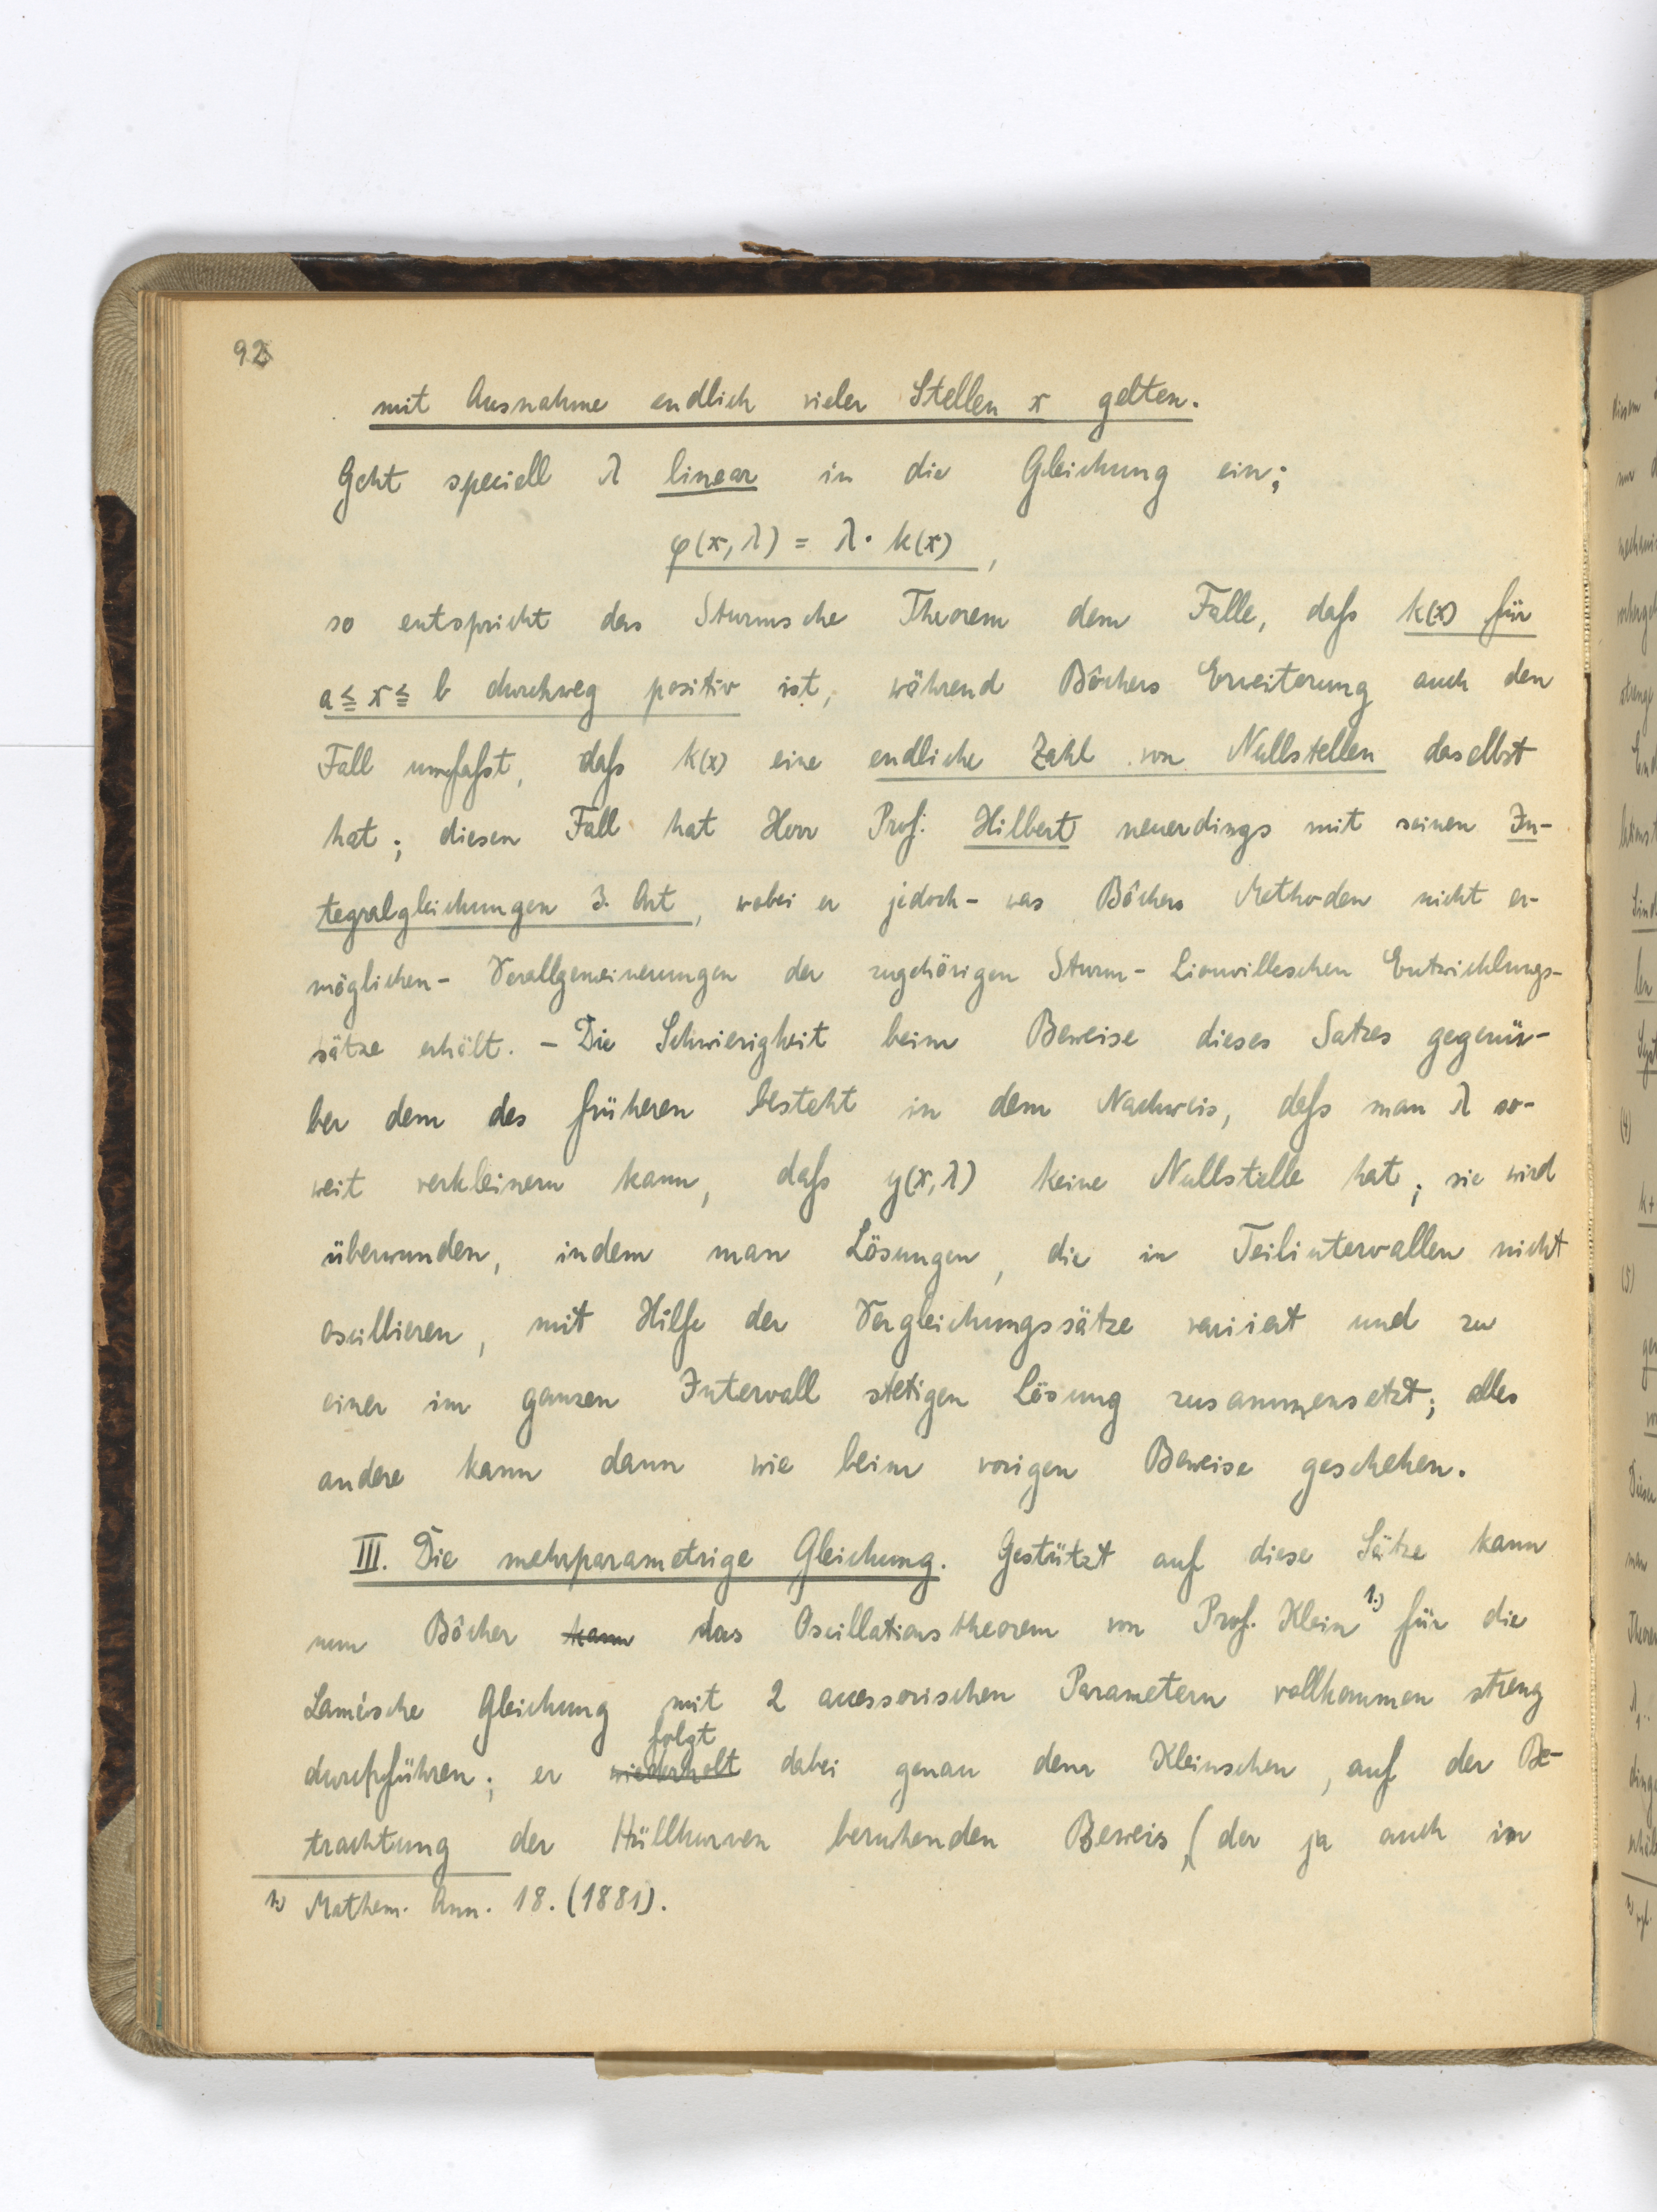 92
mit Ausnahme endlich vieler Stellen x gelten.
Geht speciell λ linear in die Gleichung ein;
φ(x, λ) = λ · k(x) ,
so entspricht das Sturmsche Theorem dem Falle, daſs k(x) für
a ≦ x ≦ b durchweg positiv ist, während Bôchers Erweiterung auch den
Fall umfaſst, daſs k(x) eine endliche Zahl von Nullstellen daselbst
hat; diesen Fall hat Herr Prof. Hilbert neuerdings mit seinen In-
tegralgleichungen 3. Art, wobei er jedoch - was Bôchers Methoden nicht er-
möglichen - Verallgemeinerungen der zugehörigen Sturm-Liouvilleschen Entwicklungs-
sätze erhält. - Die Schwierigkeit beim Beweise dieses Satzes gegenü-
ber dem des früheren besteht in dem Nachweis, daſs man λ so-
weit verkleinern kann, daſs y(x, λ) keine Nullstelle hat; sie wird
überwunden, indem man Lösungen, die in Teilintervallen nicht
oscillieren, mit Hilfe der Vergleichungssätze variiert und zu
einer im ganzen Intervall stetigen Lösung zusammensetzt; alles
andere kann dann wie beim vorigen Beweise geschehen.
III. Die mehrparametrige Gleichung. Gestützt auf diese Sätze kann
nun Bôcher kann das Oscillationstheorem von Prof. Klein 1.) für die
Lamésche Gleichung mit 2 accessorischen Parametern vollkommen streng
folgt
durchführen; er wiederholt dabei genau dem Kleinschen, auf der Be-
trachtung der Hüllkurven beruhenden Beweis, (der ja auch in
1.) Mathem. Ann. 18. (1881).